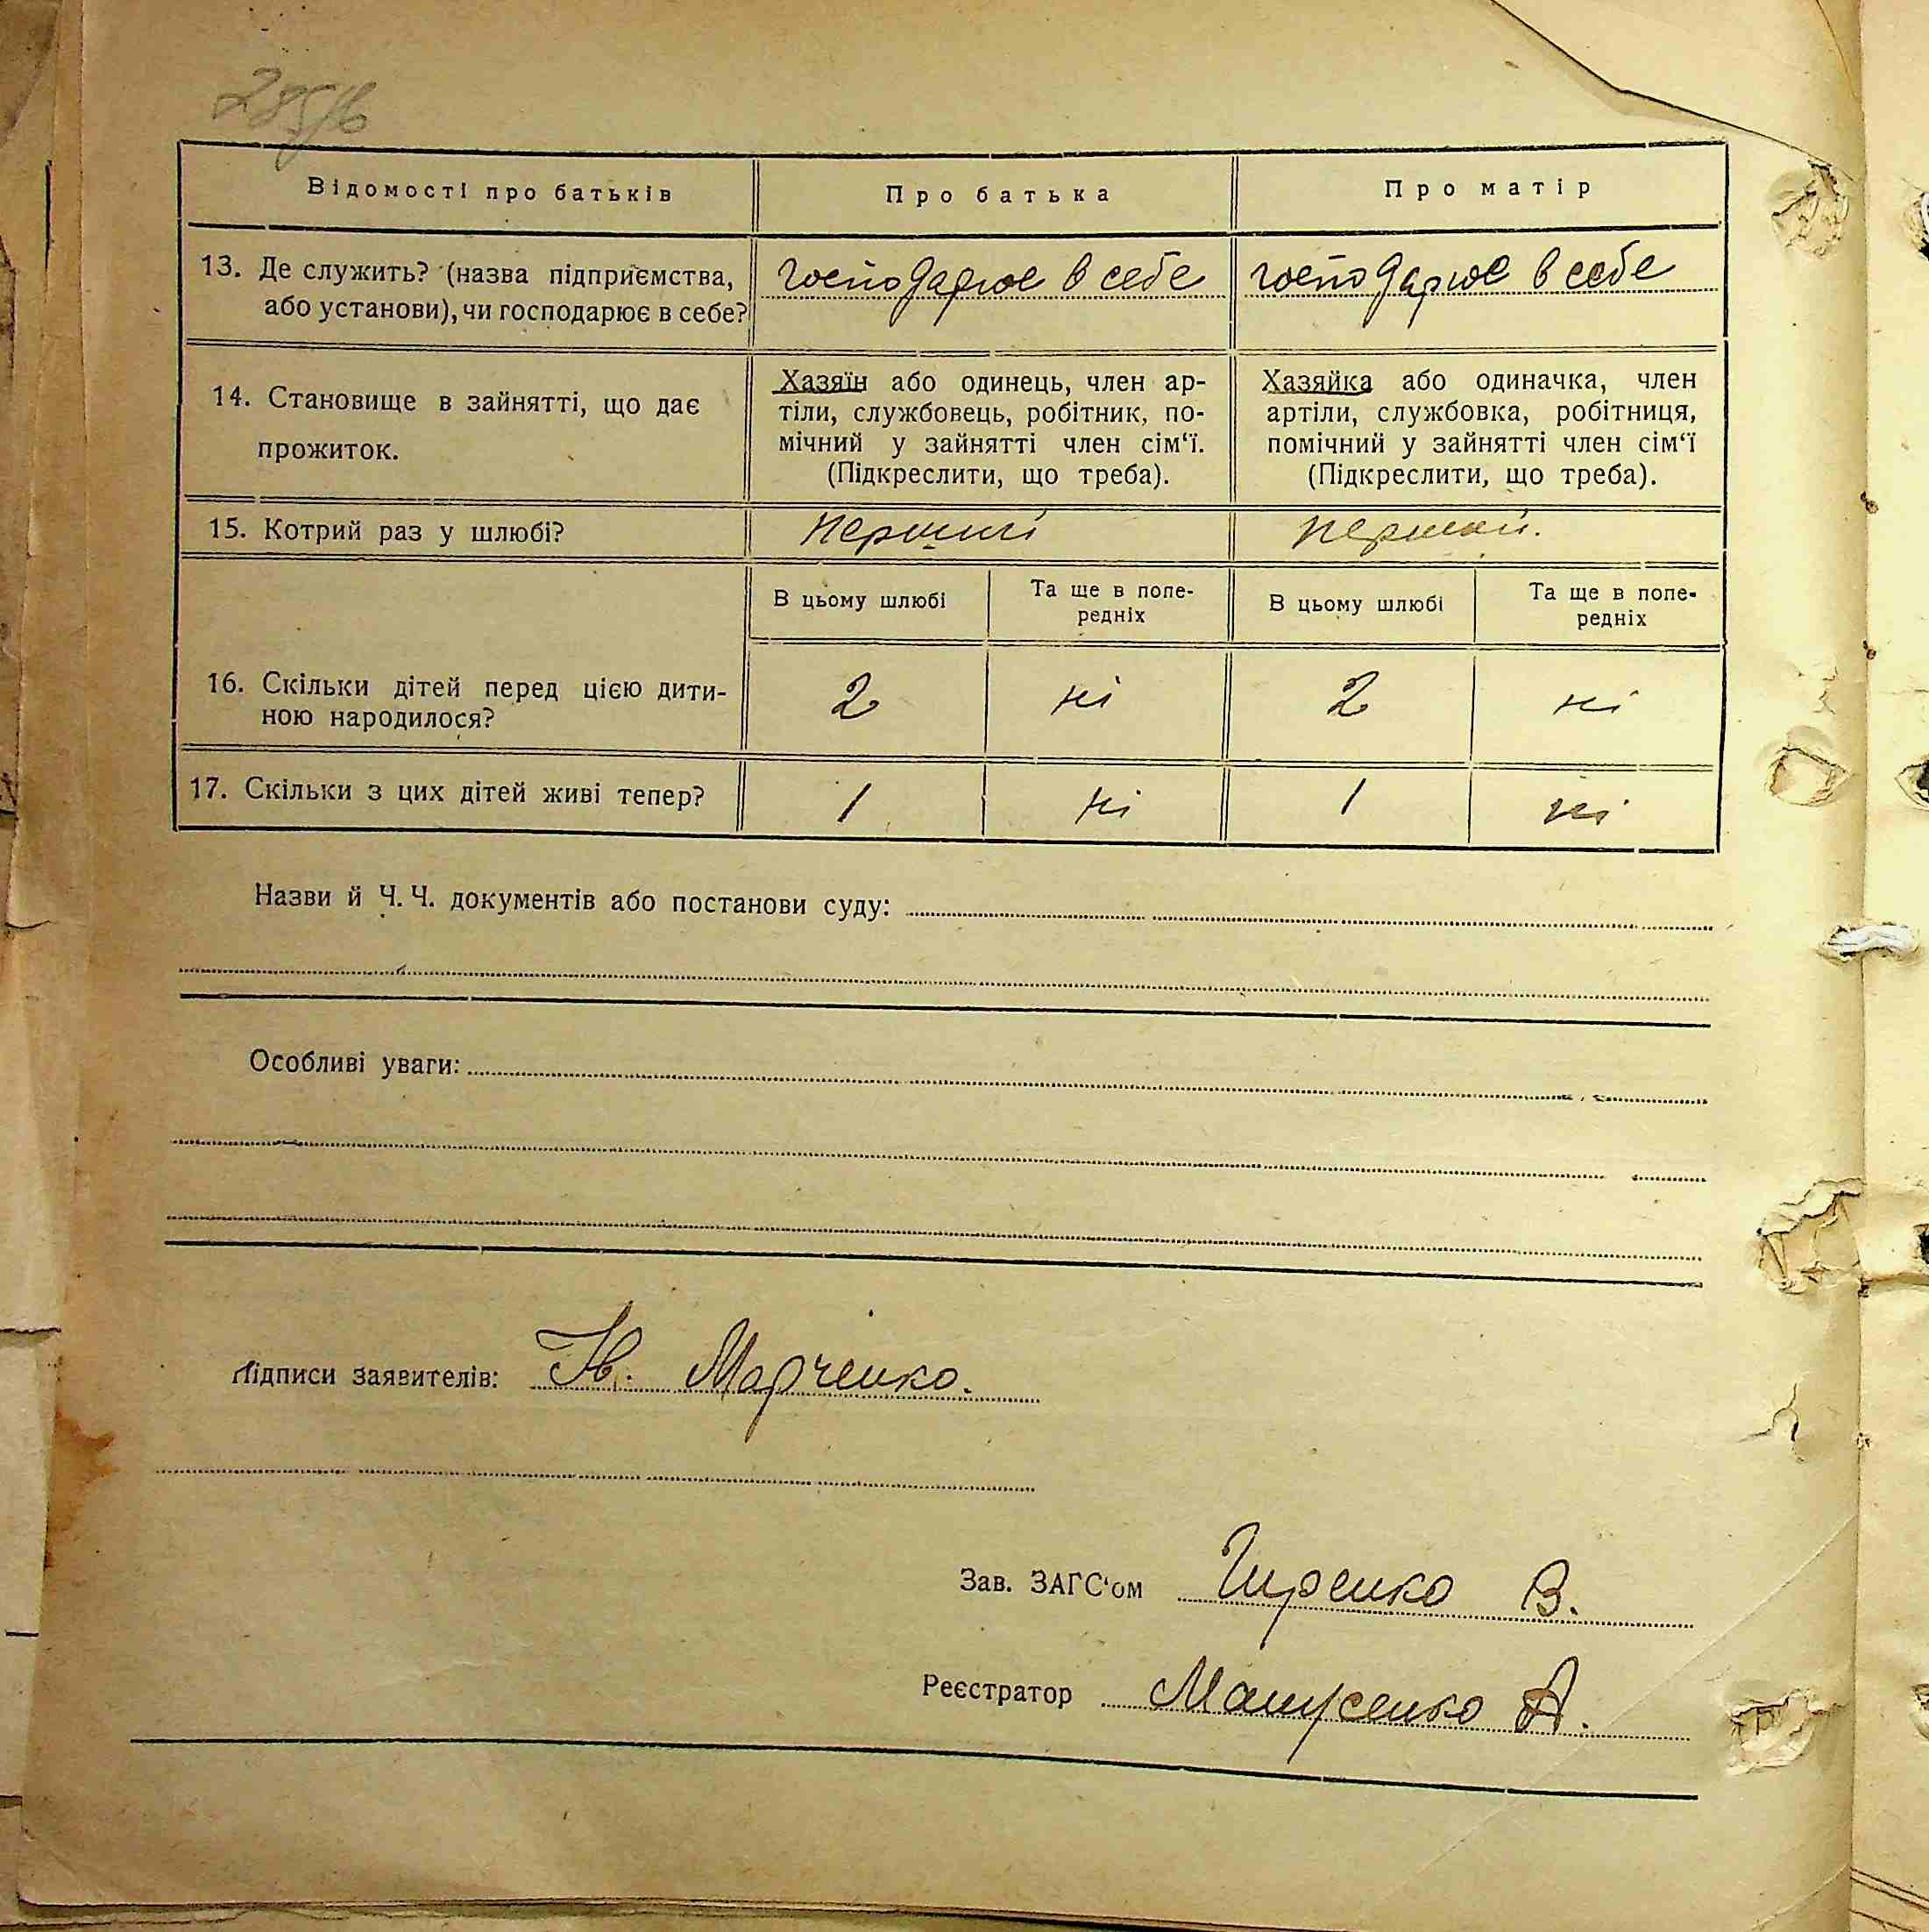 285/6
Відомості про батьків
Про батька
Про матір
13. Де служить? (назва підприємства,
або установи), чи господарює в себе?
господарює в себе
господарює в себе
14. Становище в зайнятті, що дає
прожиток.
Хазяїн або одинець, член ар-
тіли, службовець, робітник, по-
мічний у зайнятті член сім‘ї.
(Підкреслити, що треба).
Хазяйка або одиначка, член
артіли, службовка, робітниця,
помічний у зайнятті член сім‘ї
(Підкреслити, що треба).
15. Котрий раз у шлюбі?
перший
перший.
В цьому шлюбі
Та ще в попе-
редніх
В цьому шлюбі
Та ще в попе-
редніх
16. Скільки дітей перед цією дити-
ною народилося?
2
ні
2
ні
17. Скільки з цих дітей живі тепер?
1
ні
1
ні
Назви й Ч. Ч. документів або постанови суду:
Особливі уваги:
Підписи заявителів: Марченко.
Зав. ЗАГС‘ом Гиренко В.
Реєстратор А.